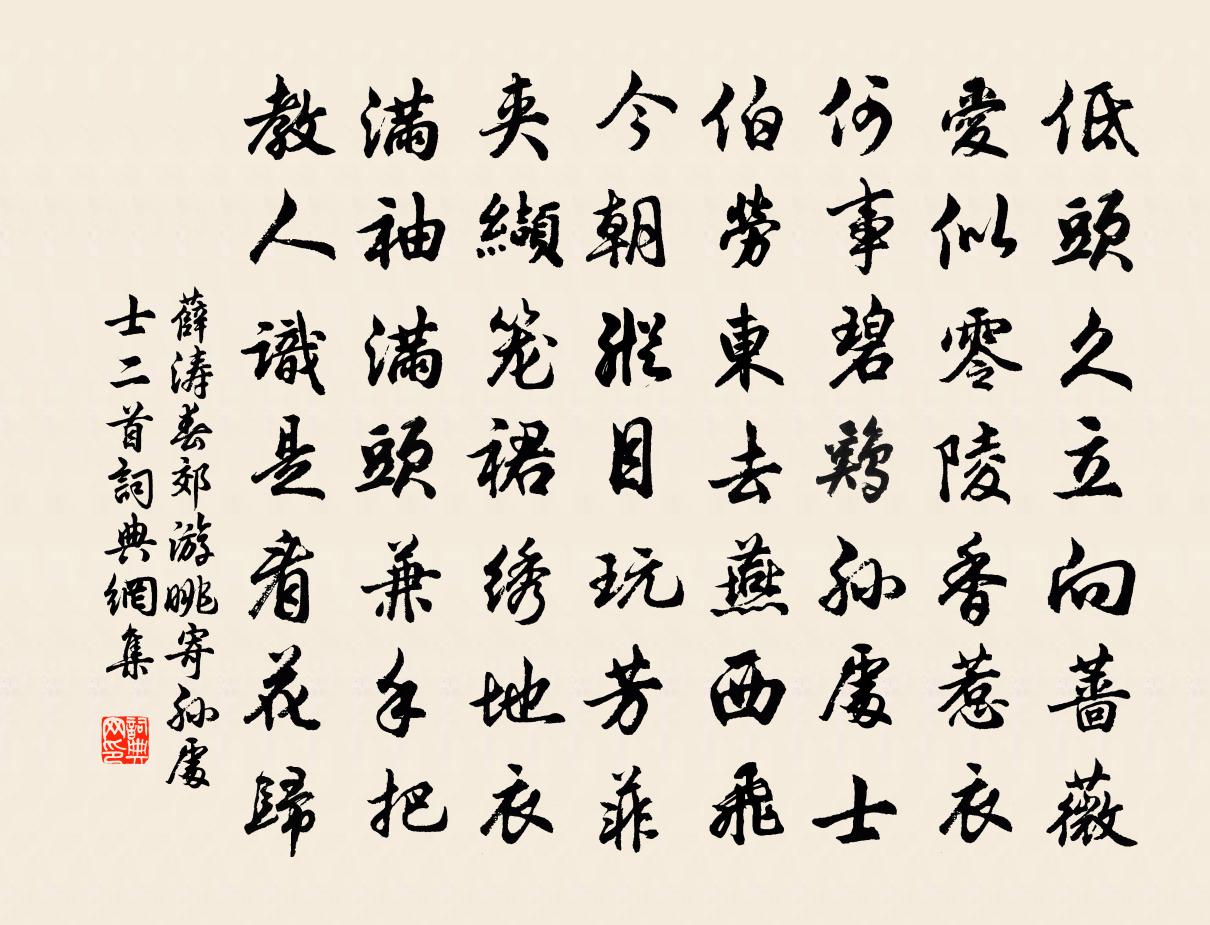 低頭久立向薔薇
愛似零陵香惹衣
何事碧鷄孫處士
伯勞東去燕西飛
今朝縱目玩芳菲
夾纈笼裙绣地衣
滿袖滿頭兼手把
教人識是看花歸
薛涛春郊游眺寄孙處
士二首詞典網集
詞典
网印